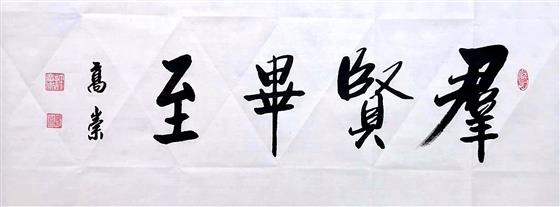 羣賢畢至
高崇